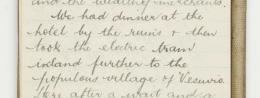 and the wealthy merchants.
We had dinner at the
hotel by the ruins & then
took the electric tram
inland further to the
populous village of Vesuvio.
Here after a wait and a